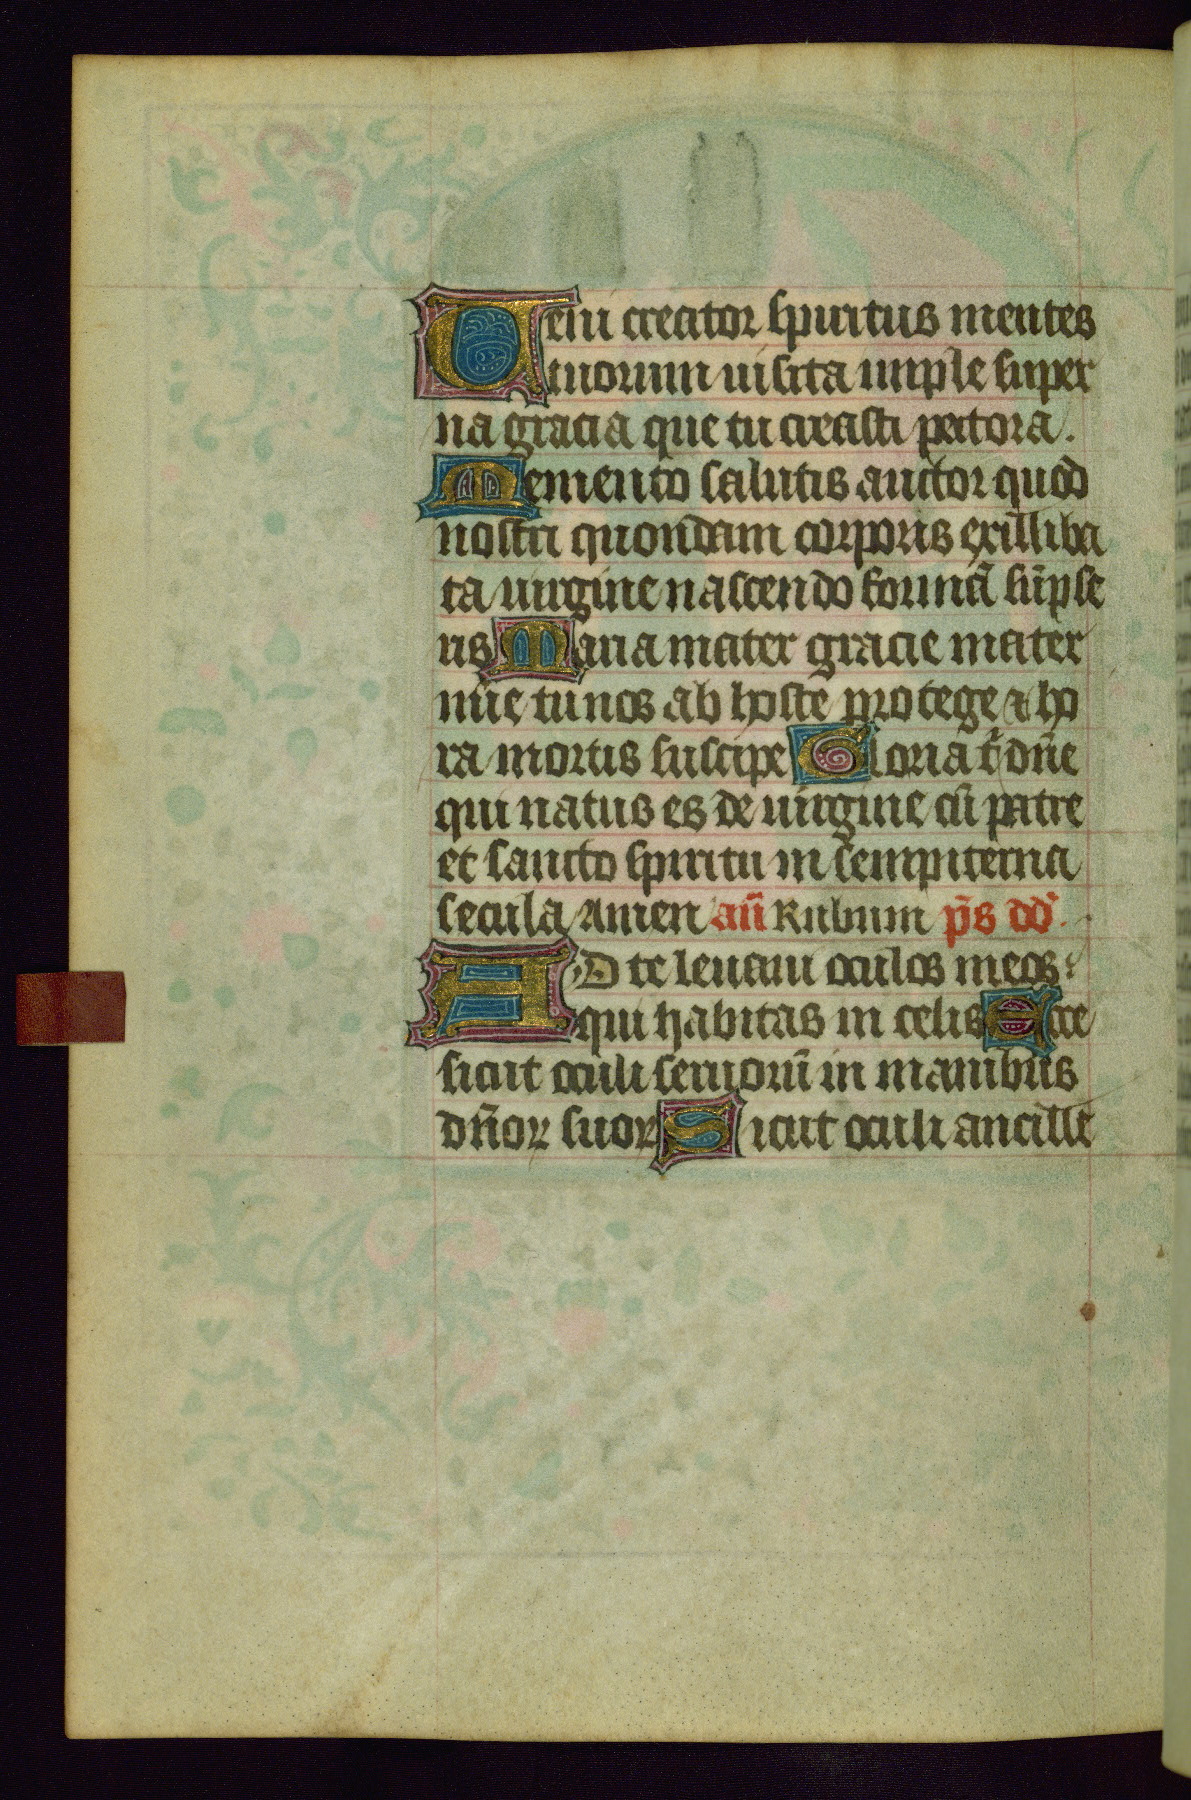 Veni creator spiritus mentes
tuorum uisita imple super
na gracia que tu creasti pectora.
Memento salutis auctor quod
nostri quondam corporis ex illiba
ta uirgine nascendo formã sũpse
ris Maria mater gracie mater
mĩe tu nos ab hoste protege ⁊ ho
ra mortis suscipe Gloria t̃ dñe
qui natus es de uirgine cũ patre
et sancto spiritu in sempiterna
secula Amen añ Rubum p̃s dd̃.
AD te leuaui oculos meos:
qui habitas in celis Ecce
sicut oculi seruorũ in manibus
dñoꝝ suoꝝ Sicut oculi ancille